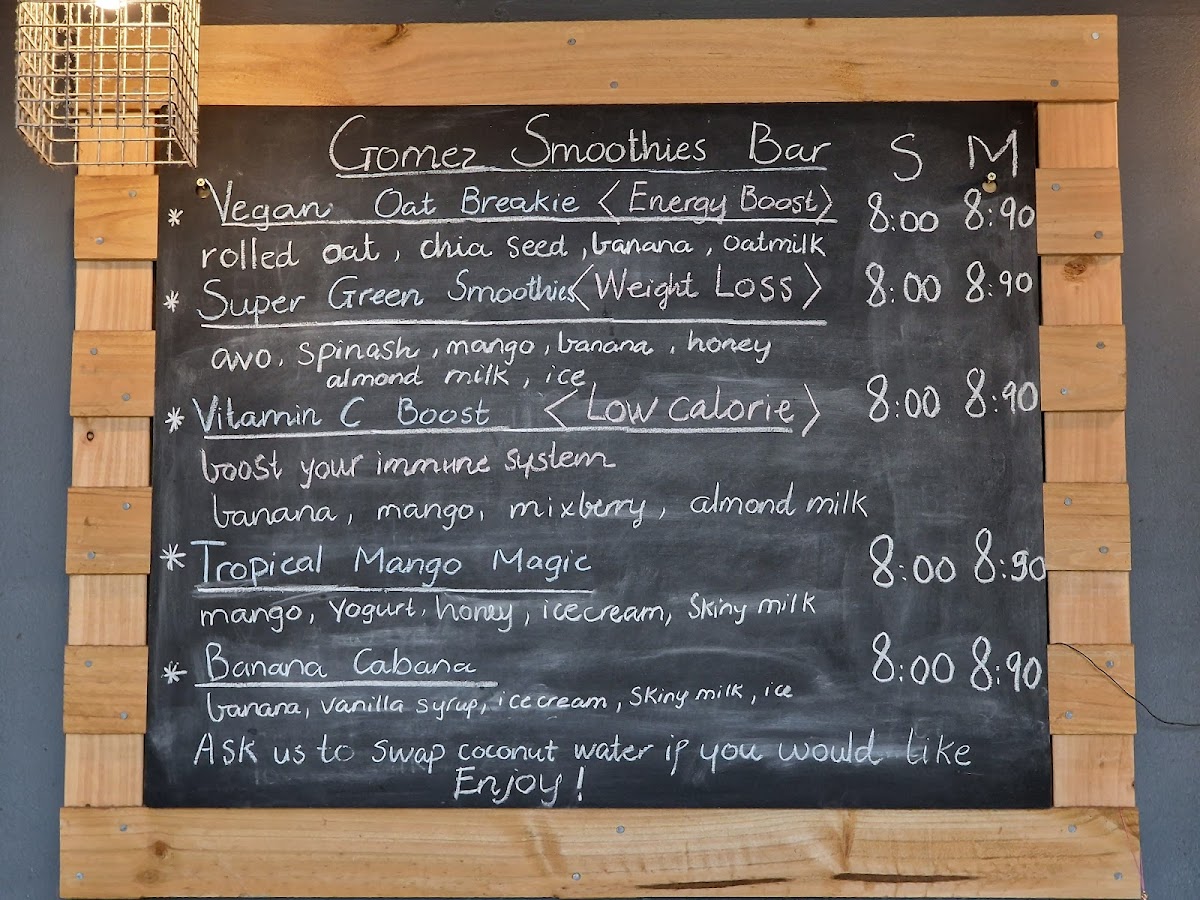 Gomez Smoothies Bar S M
* Vegan Oat Breakie <Energy Boost> 8:00 8:90
rolled oat, chia seed, banana, oatmilk
* Super Green Smoothies <Weight Loss> 8:00 8:90
avo, spinash, mango, banana, honey
almond milk, ice
* Vitamin C Boost <Low calorie> 8:00 8:90
boost your immune system
banana, mango, mixberry, almond milk
* Tropical Mango Magic 8:00 8:90
mango, Yogurt, honey, icecream, Skiny milk
* Banana Cabana 8:00 8:90
banana, vanilla syrup, icecream, Skiny milk, ice
Ask us to swap coconut water if you would like
Enjoy!